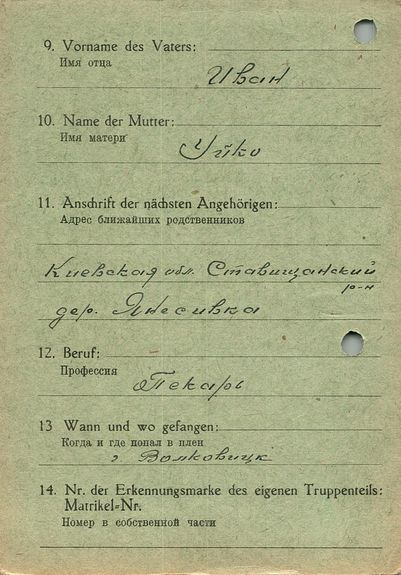 9. Vorname des Vaters:
Имя отца
Иван
10. Name der Mutter:
Имя матери
Уйко
11. Anschrift der nächsten Angehörigen:
Адрес ближайших родственников
Киевская обл. Ставищанский
р-н
дер. Янесивка
12. Beruf:
Профессия
Пекарь
13 Wann und wo gefangen:
Когда и где попал в плен
г Волковицк
14. Nr. der Erkennungsmarke des eigenen Truppenteils:
Matrikel-Nr.
Номер в собственной части